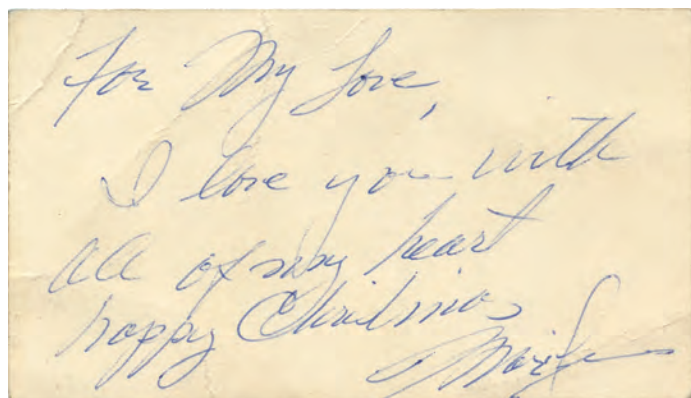 For My Love,
I love you with
all of my heart
happy Christmas